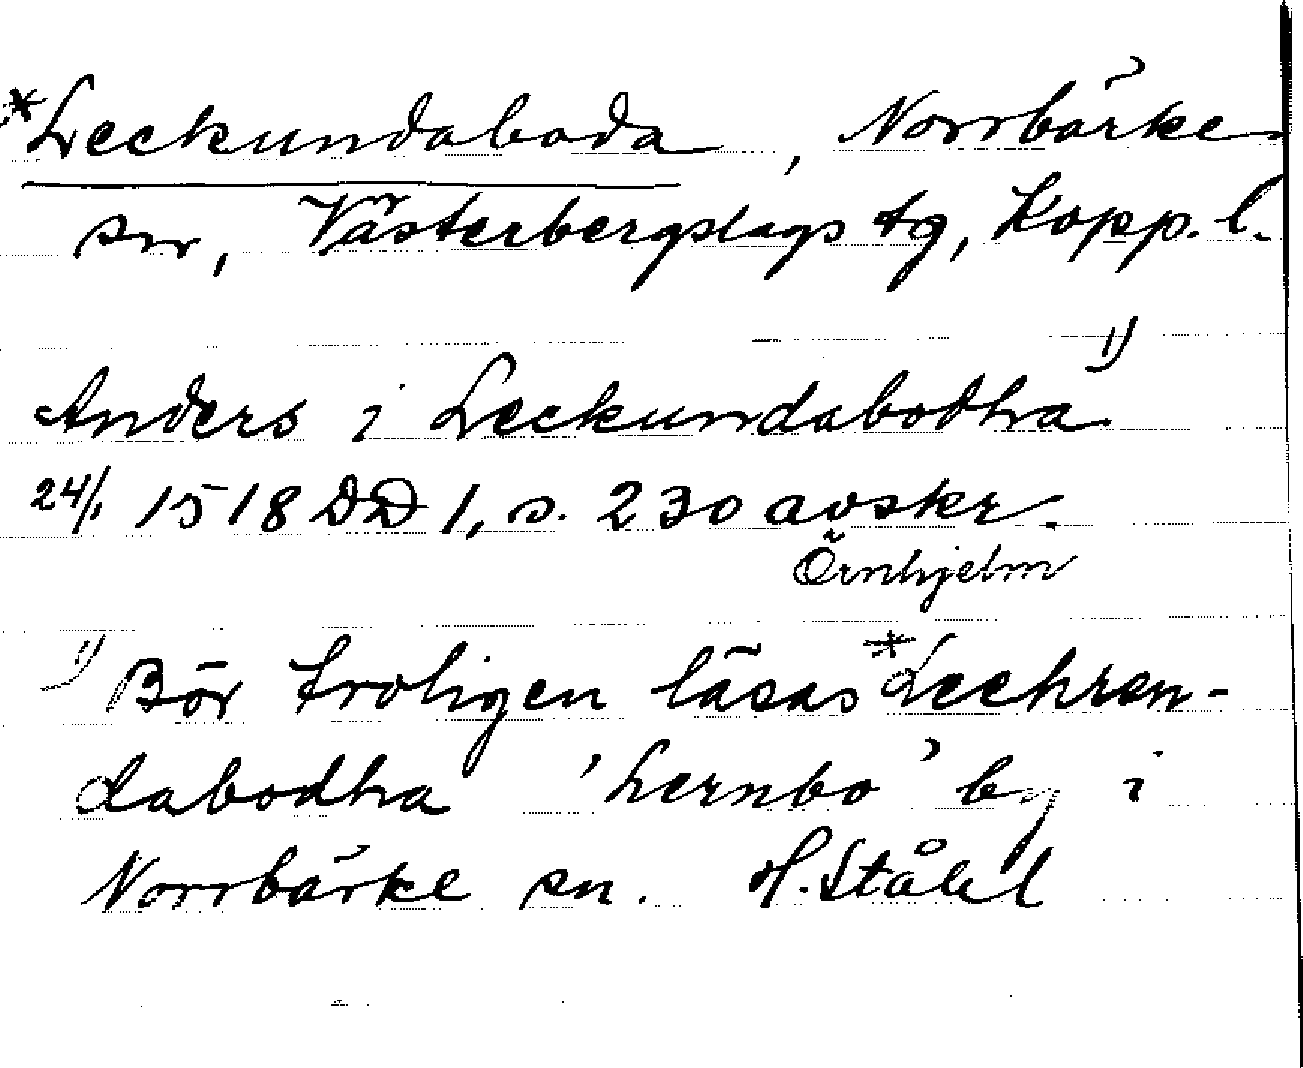 *Leckundaboda, Norrbärke
sn, Västerbergslags tg, Kopp. l.
Anders i Leckundabodha 1)
24/1 1518 DD 1, s. 230 avskr.
Örnhjelm
1) Bör troligen läsas *Leckren-
dabodha 'Lernbo' by i
Norrbärke sn. H. Ståhl